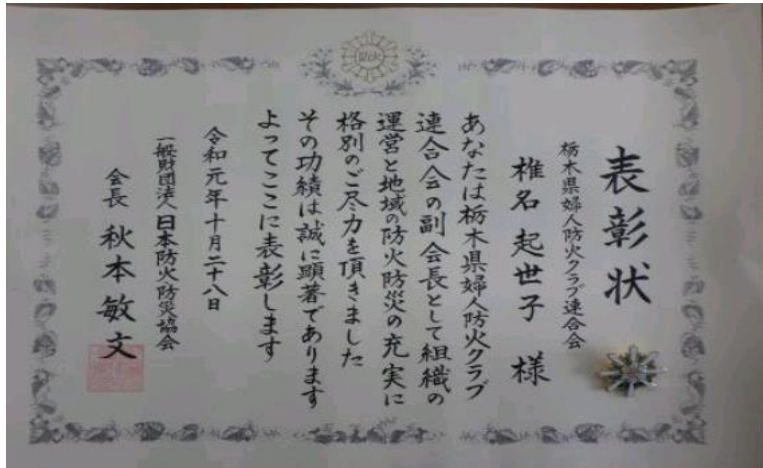 防火
表彰状
栃木県婦人防火クラブ連合会
椎名起世子 様
あなたは栃木県婦人防火クラブ
連合会の副会長として組織の
運営と地域の防火防災の充実に
格別のご尽力を頂きました
その功績は誠に顕著であります
よってここに表彰します
令和元年十月二十八日
一般財団法人日本防火防災協会
会長 秋本敏文